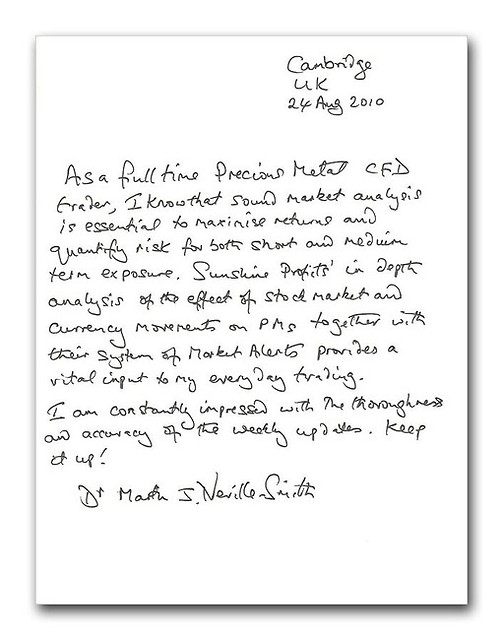 Cambridge
UK
24 Aug 2010
As a full time Precious Metal CFD
trader, I know that sound market analysis
is essential to maximise returns and
quantify risk for both short and medium
term exposure. Sunshine Profits' in depth
analysis of the effect of stock market and
currency movements on PMs together with
their system of Market Alerts provides a
vital input to my everyday trading.
I am constantly impressed with the thoroughness
and accuracy of the weekly updates. Keep
it up!
Dr Martin J. Neville-Smith